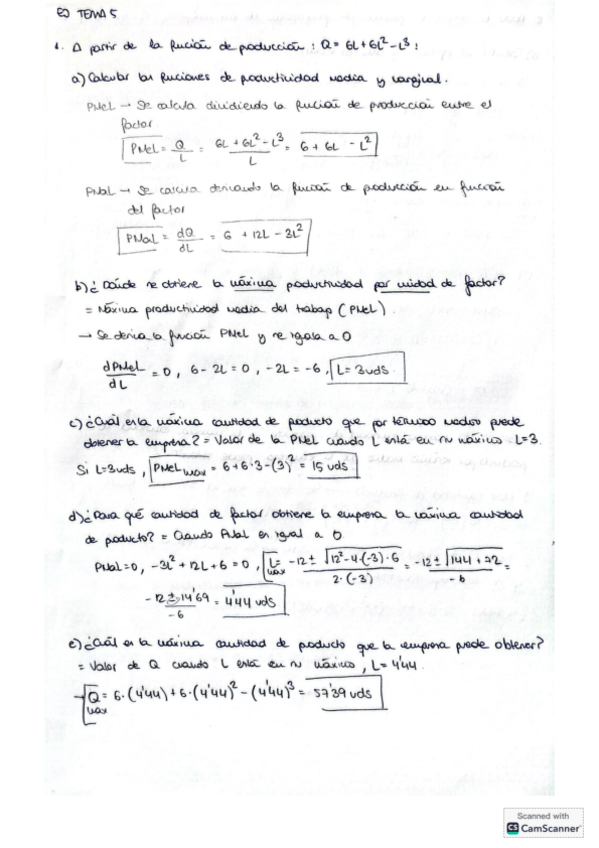 EJ TEMA 5
1. A partir de la función de producción : Q = 6L + 6L² - L³ :
a) Calcular las funciones de productividad media y marginal.
PMeL → Se calcula dividiendo la función de producción entre el
factor
PMeL = Q/L = (6L + 6L² - L³)/L = 6 + 6L - L²
PMaL → Se calcula derivando la función de producción en función
del factor
PMaL = dQ/dL = 6 + 12L - 3L²
b) ¿Dónde se obtiene la máxima productividad por unidad de factor?
= Máxima productividad media del trabajo (PMeL).
→ Se deriva la función PMeL y se iguala a 0
dPMeL/dL = 0, 6 - 2L = 0, -2L = -6, L = 3 uds.
c) ¿Cuál es la máxima cantidad de producto que por término medio puede
obtener la empresa? = Valor de la PMeL cuando L está en su máximo L=3.
Si L=3uds, PMeL max = 6 + 6·3 - (3)² = 15 uds
d) ¿Para qué cantidad de factor obtiene la empresa la máxima cantidad
de producto? = Cuando PMaL es igual a 0.
PMaL = 0, -3L² + 12L + 6 = 0, L max = (-12 ± √(12² - 4·(-3)·6))/(2·(-3)) = (-12 ± √(144 + 72))/(-6) =
(-12 ± 14'69)/(-6) = 4'44 uds
e) ¿Cuál es la máxima cantidad de producto que la empresa puede obtener?
= Valor de Q cuando L está en su máximo, L = 4'44.
→ Q max = 6·(4'44) + 6·(4'44)² - (4'44)³ = 57'39 uds
Scanned with
CS CamScanner